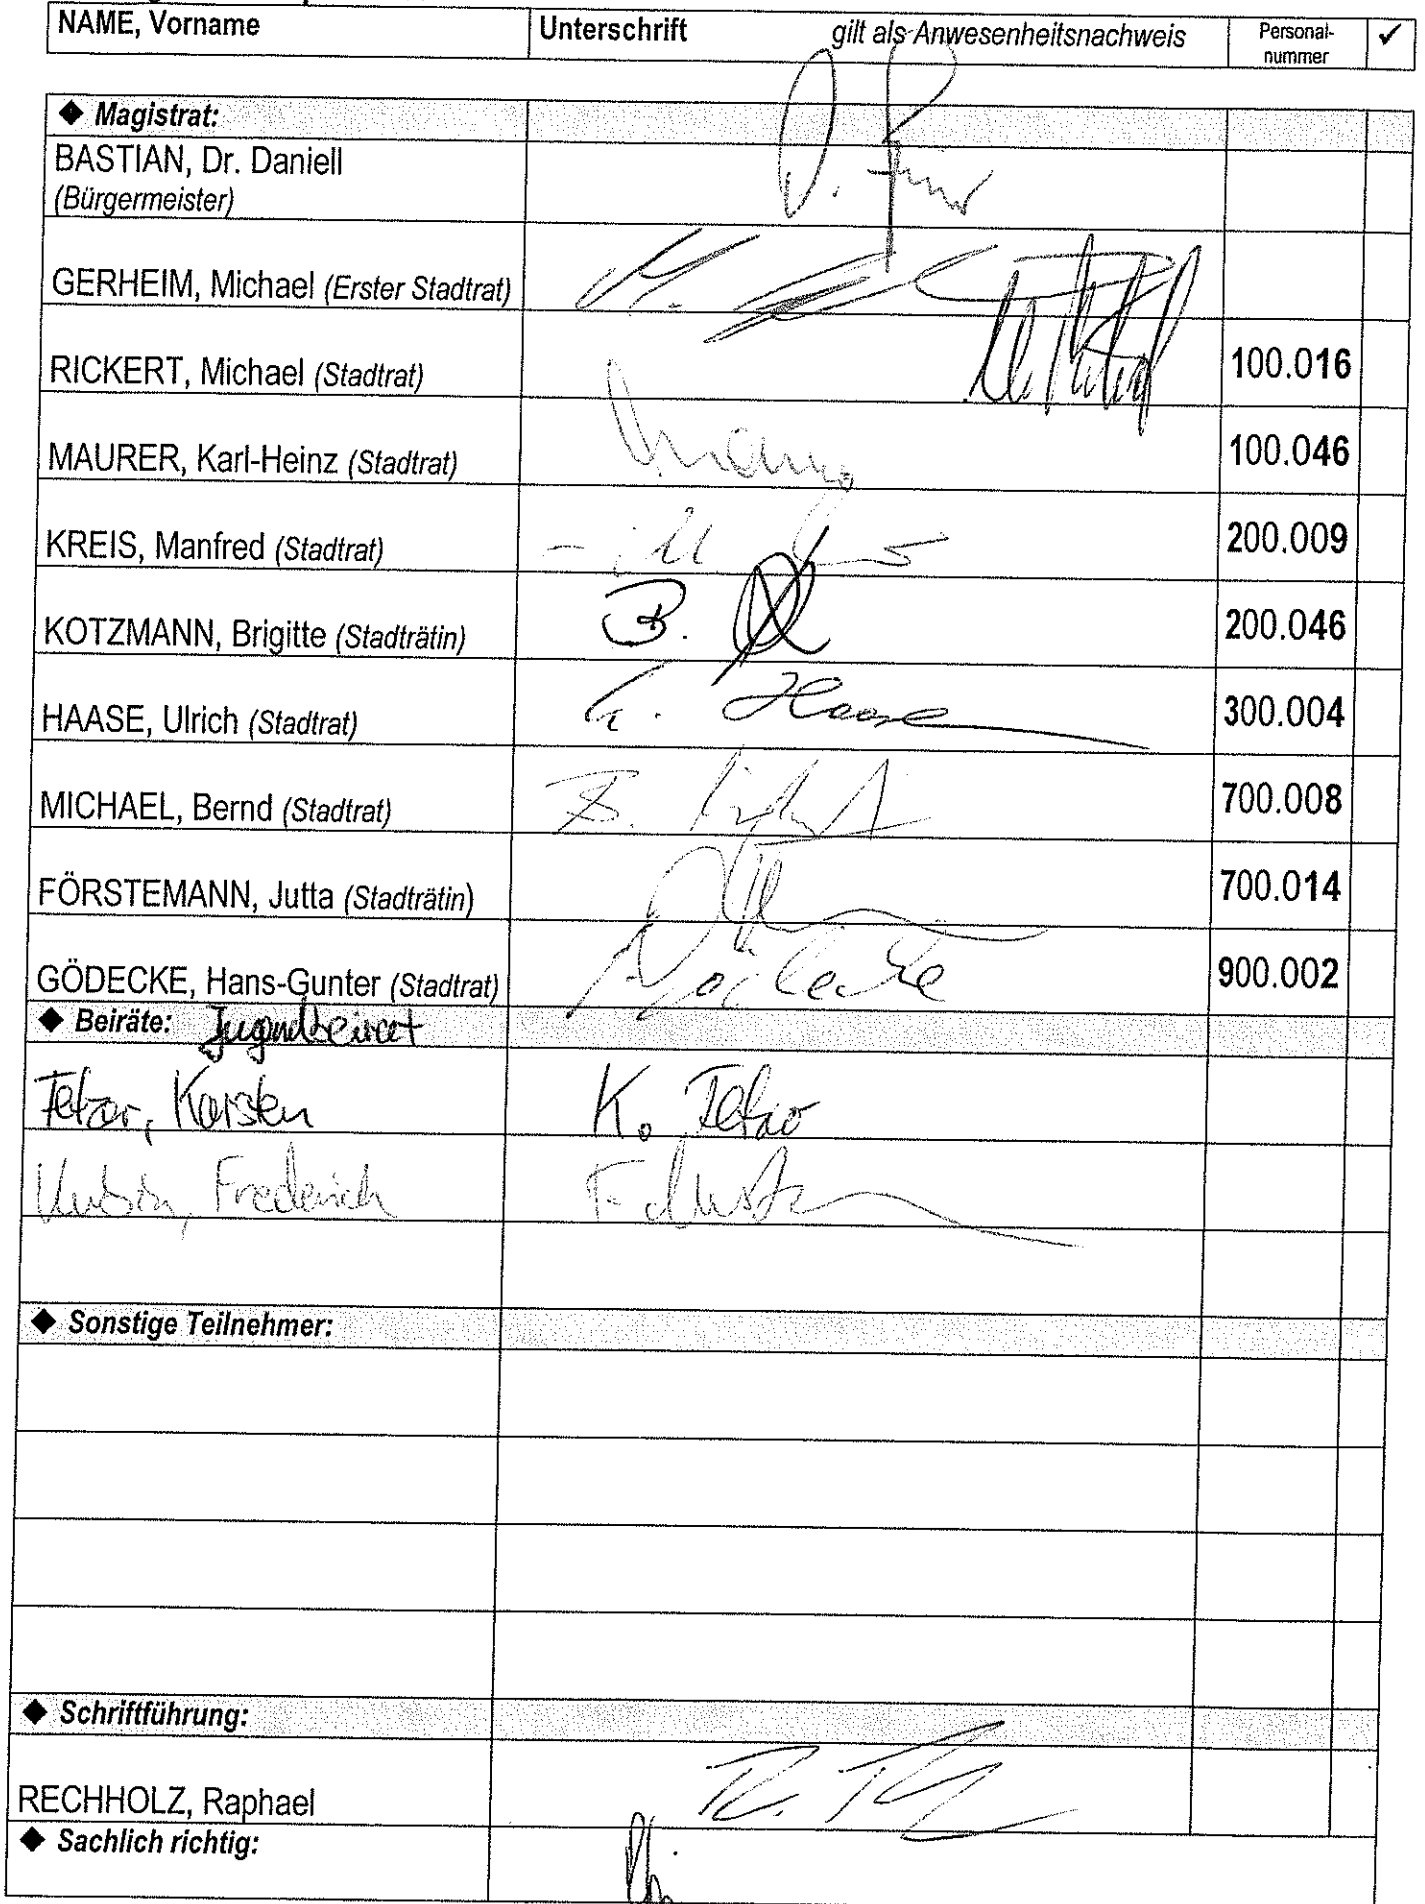 NAME, Vorname Unterschrift gilt als Anwesenheitsnachweis Personal-nummer ✓
◆ Magistrat:
BASTIAN, Dr. Daniell
(Bürgermeister)
GERHEIM, Michael (Erster Stadtrat)
RICKERT, Michael (Stadtrat) 100.016
MAURER, Karl-Heinz (Stadtrat) 100.046
KREIS, Manfred (Stadtrat) 200.009
KOTZMANN, Brigitte (Stadträtin) B. 200.046
HAASE, Ulrich (Stadtrat) Haase 300.004
MICHAEL, Bernd (Stadtrat) B. 700.008
FÖRSTEMANN, Jutta (Stadträtin) 700.014
GÖDECKE, Hans-Gunter (Stadtrat) Gödecke 900.002
◆ Beiräte: Jugendbeirat
Fetzer, Karsten K. Fetzer
Frederich
◆ Sonstige Teilnehmer:
◆ Schriftführung:
RECHHOLZ, Raphael
◆ Sachlich richtig: